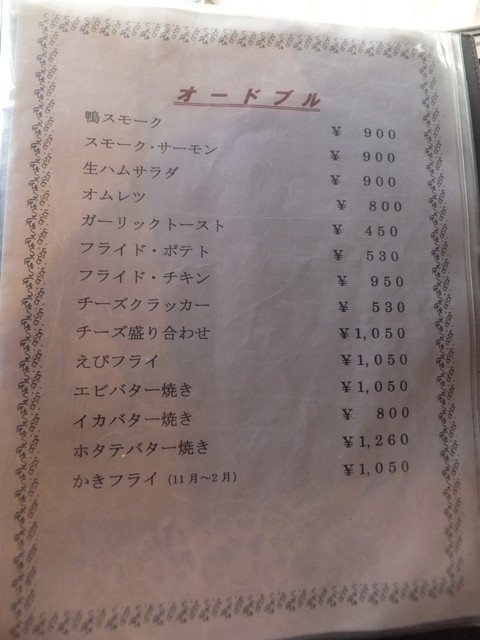 オードブル
鴨スモーク ¥ 900
スモーク・サーモン ¥ 900
生ハムサラダ ¥ 900
オムレツ ¥ 800
ガーリックトースト ¥ 450
フライド・ポテト ¥ 530
フライド・チキン ¥ 950
チーズクラッカー ¥ 530
チーズ盛り合わせ ¥1,050
えびフライ ¥1,050
エビバター焼き ¥1,050
イカバター焼き ¥ 800
ホタテバター焼き ¥1,260
かきフライ (11月～2月) ¥1,050